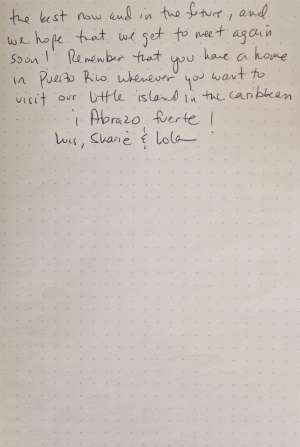 the best now and in the future, and
we hope that we get to meet again
soon! Remember that you have a home
in Puerto Rico whenever you want to
visit our little island in the caribbean
¡Abrazo fuerte!
Luis, Sharie & Lola